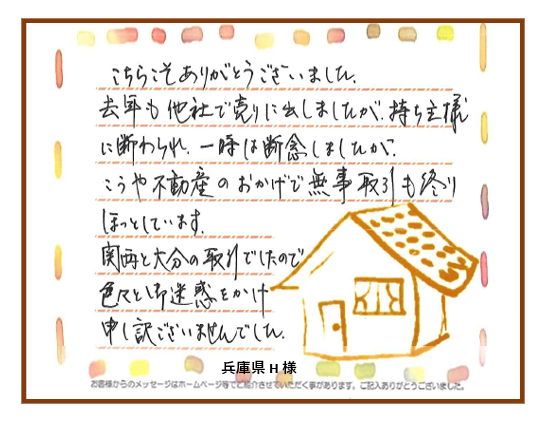 こちらこそありがとうございました。
去年も他社で売りに出しましたが、持ち主様
に断わられ、一時は断念しましたが、
こうや不動産のおかげで無事取引も終り
ほっとしています。
関西と大分の取引でしたので
色々と御迷惑をかけ
申し訳ございませんでした。
兵庫県 H 様
お客様からのメッセージはホームページ等でご紹介させていただく事があります。ご記入ありがとうございました。